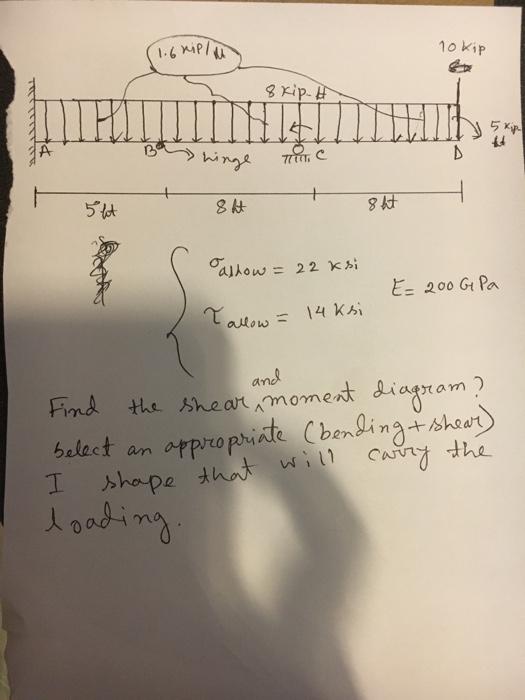 1.6 kip/ft
10 kip
8 kip-ft
5 kip
ft
A
B → hinge
C
D
5 ft
8 ft
8 ft
σallow = 22 ksi
E = 200 GPa
τallow = 14 ksi
Find the shear and moment diagram?
Select an appropriate (bending + shear)
I shape that will carry the
loading.